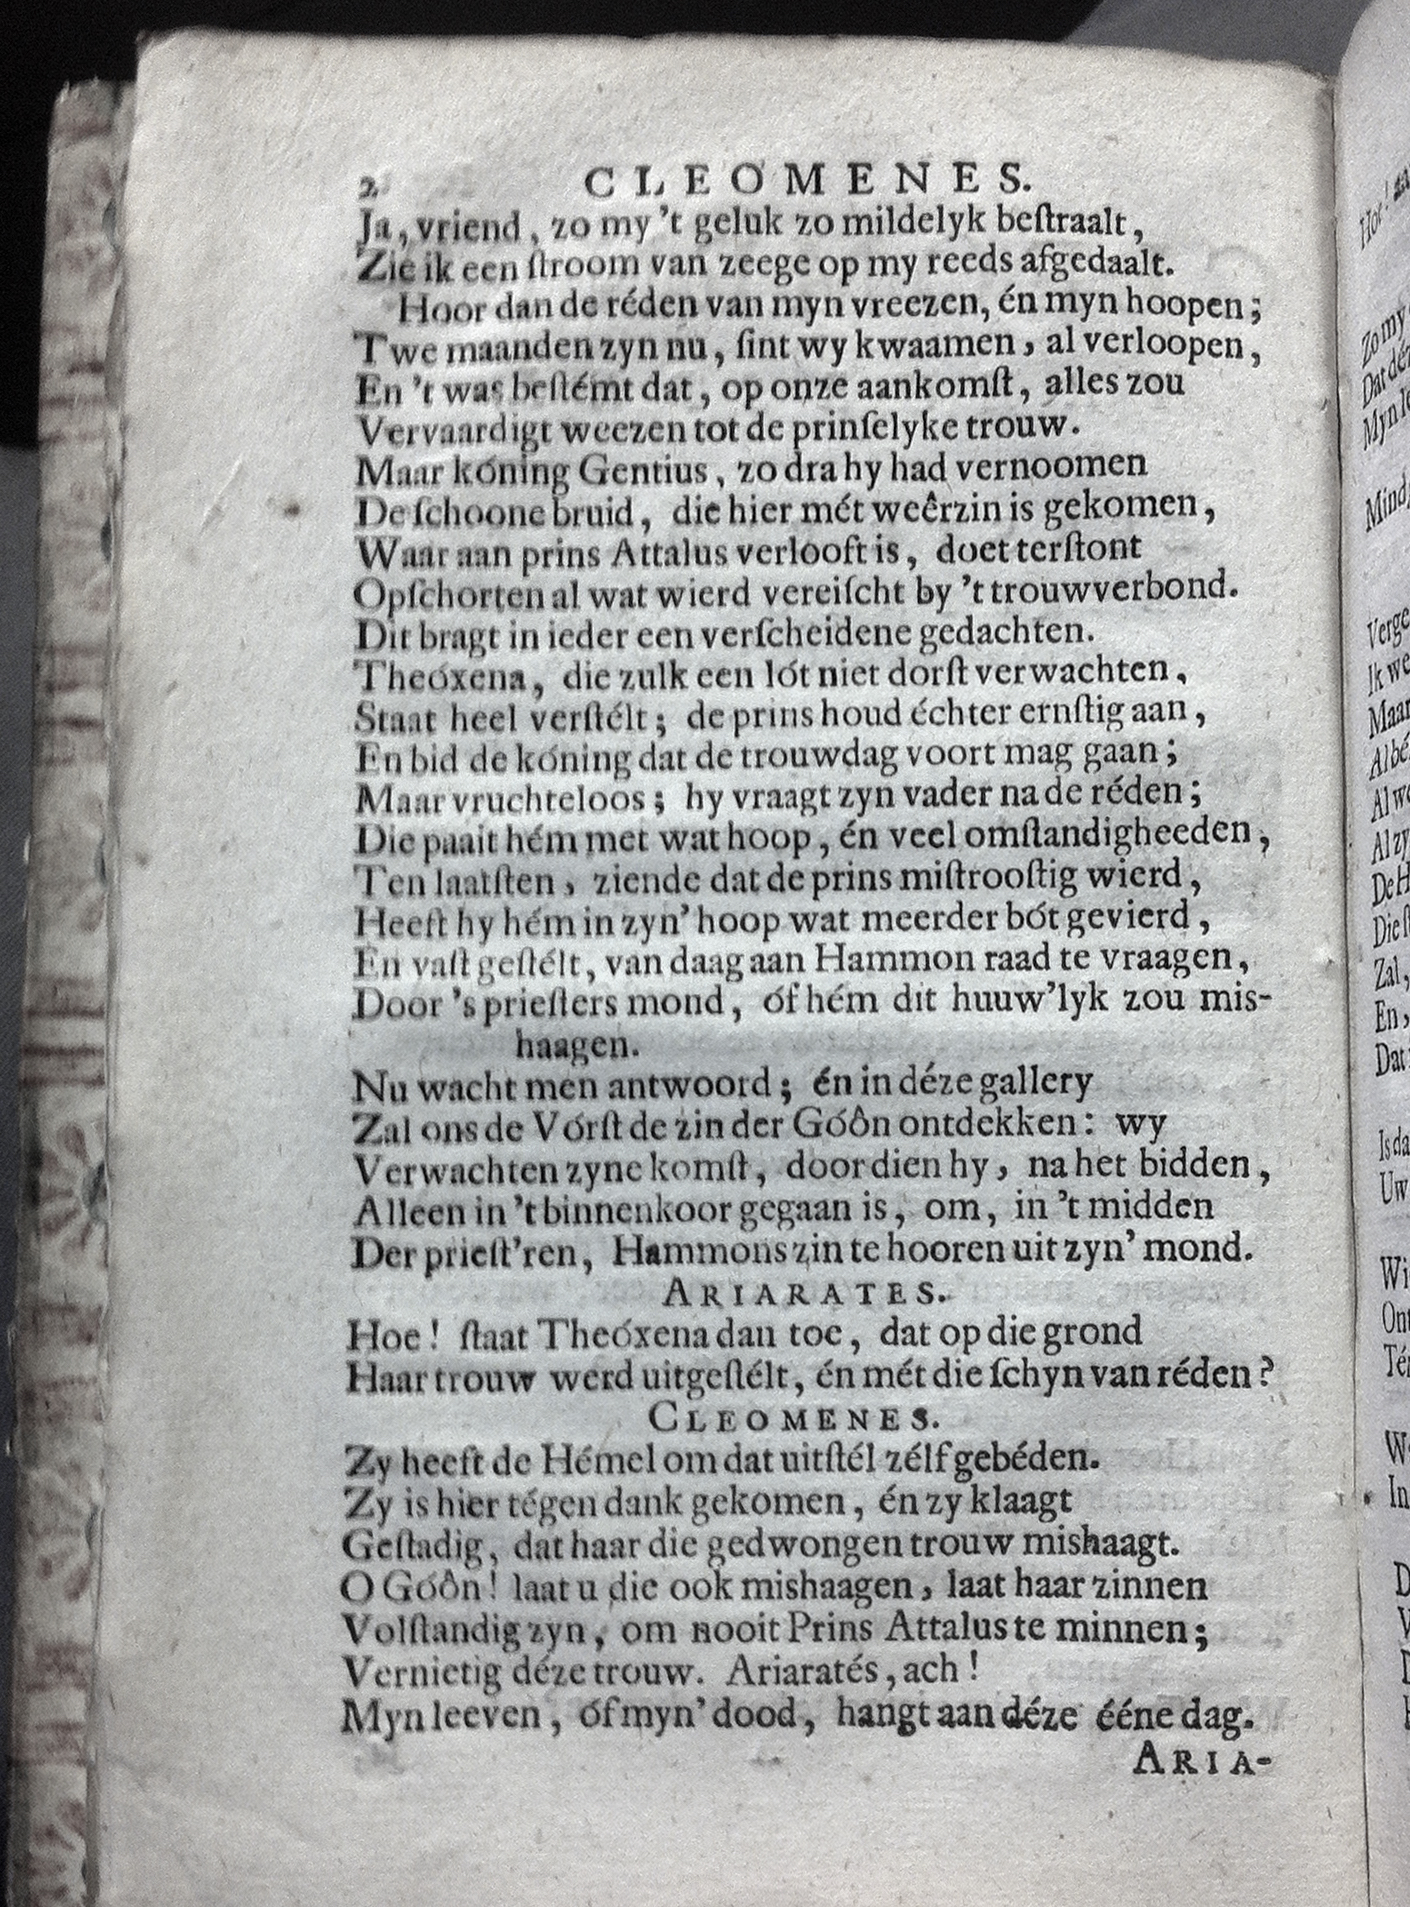 2 CLEOMENES.
Ja, vriend, zo my 't geluk zo mildelyk beſtraalt,
Zie ik een ſtroom van zeege op my reeds afgedaalt.
Hoor dan de réden van myn vreezen, én myn hoopen;
Twe maanden zyn nu, ſint wy kwaamen, al verloopen,
En 't was beſtémt dat, op onze aankomſt, alles zou
Vervaardigt weezen tot de prinſelyke trouw.
Maar kóning Gentius, zo dra hy had vernoomen
De ſchoone bruid, die hier mét weêrzin is gekomen,
Waar aan prins Attalus verlooft is, doet terſtont
Opſchorten al wat wierd vereiſcht by 't trouwverbond.
Dit bragt in ieder een verſcheidene gedachten.
Theóxena, die zulk een lót niet dorſt verwachten,
Staat heel verſtélt; de prins houd échter ernſtig aan,
En bid de kóning dat de trouwdag voort mag gaan;
Maar vruchteloos; hy vraagt zyn vader na de réden;
Die paait hém met wat hoop, én veel omſtandigheeden,
Ten laatſten, ziende dat de prins miſtrooſtig wierd,
Heeft hy hém in zyn' hoop wat meerder bót gevierd,
En vaſt geſtélt, van daag aan Hammon raad te vraagen,
Door 's prieſters mond, óf hém dit huuw'lyk zou mis-
haagen.
Nu wacht men antwoord; én in déze gallery
Zal ons de Vórſt de zin der Góôn ontdekken: wy
Verwachten zyne komſt, doordien hy, na het bidden,
Alleen in 't binnenkoor gegaan is, om, in 't midden
Der prieſt'ren, Hammons zin te hooren uit zyn' mond.
ARIARATES.
Hoe! ſtaat Theóxena dan toe, dat op die grond
Haar trouw werd uitgeſtélt, én mét die ſchyn van réden?
CLEOMENES.
Zy heeft de Hémel om dat uitſtél zélf gebéden.
Zy is hier tégen dank gekomen, én zy klaagt
Geſtadig, dat haar die gedwongen trouw mishaagt.
O Góôn! laat u die ook mishaagen, laat haar zinnen
Volſtandig zyn, om nooit Prins Attalus te minnen;
Vernietig déze trouw. Ariaratés, ach!
Myn leeven, óf myn' dood, hangt aan déze ééne dag.
ARIA-
Hoe!
Zo my
Dat déz
Myn le
Verge
Ik we
Maar
Al bé
Al we
Al zy
De H
Die ſ
Zal,
En,
Dat
Is da
Uw
Wi
Ont
Té
W
In
D
V
D